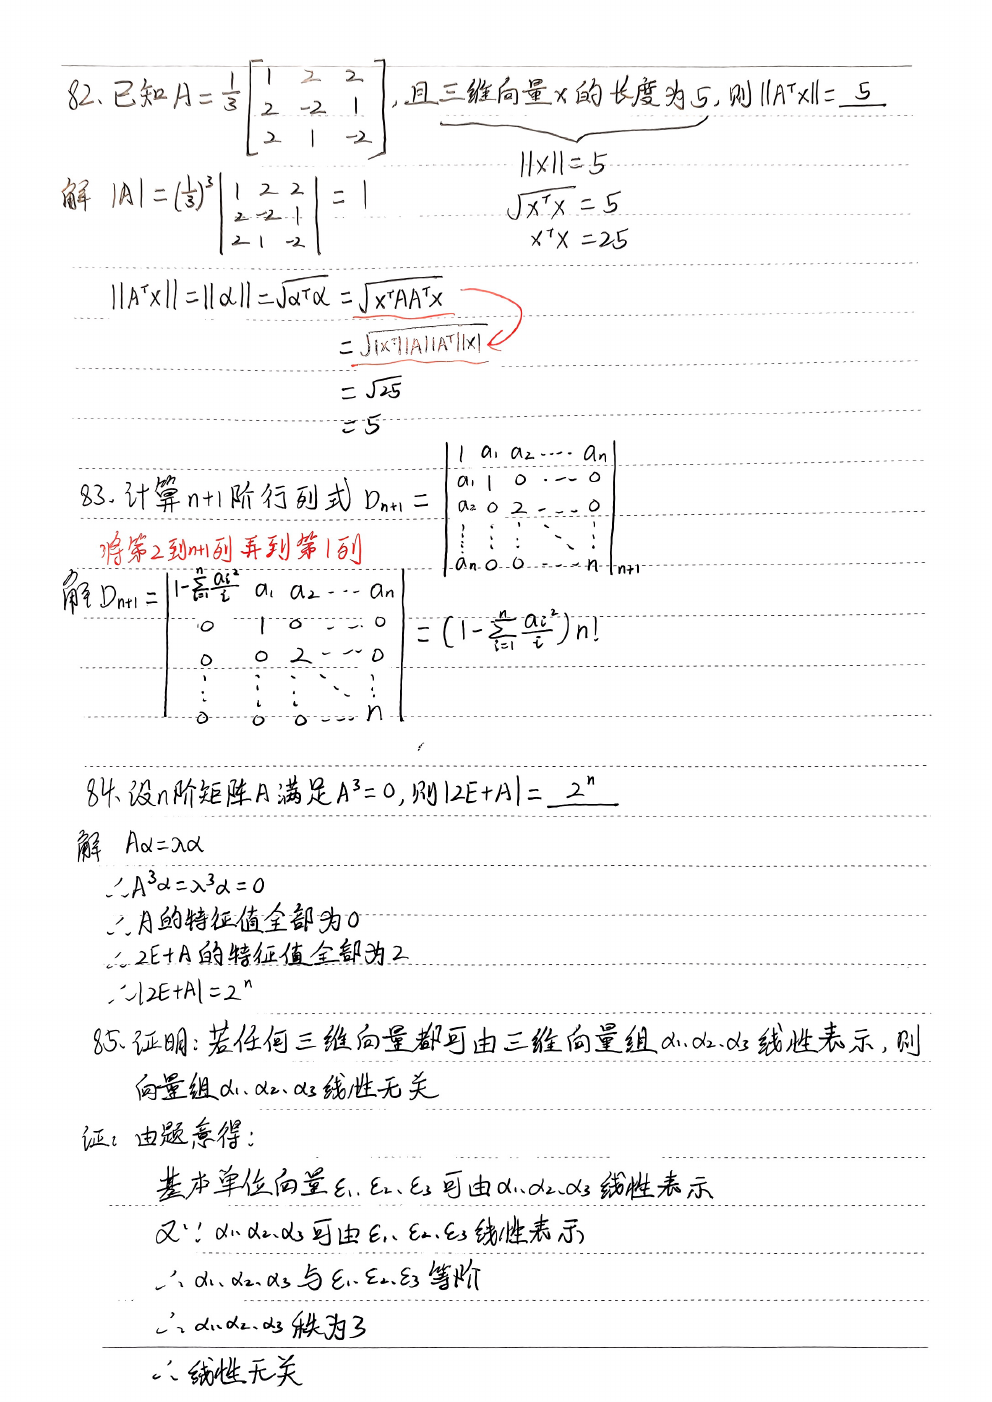 82. 已知 A = 1/3 [1 2 2; 2 -2 1; 2 1 -2], 且三维向量x的长度为5, 则||AᵀX|| = 5
||X|| = 5
√XᵀX = 5
XᵀX = 25
解 |A| = (1/3)³ |1 2 2; 2 -2 1; 2 1 -2| = 1
||AᵀX|| = ||α|| = √αᵀα = √XᵀAAᵀX
= √|Xᵀ||A||Aᵀ||X|
= √25
= 5
83. 计算n+1阶行列式 Dn+1 = |1 a₁ a₂ ···· an; a₁ 1 0 ·-- 0; a₂ 0 2 --- 0; ⋮ ⋮ ⋮ ⋱ ⋮; an 0 0 ···· n|n+1
将第2到n+1列弄到第1列
解 Dn+1 = |1-∑ⁿi=1 ai²/i a₁ a₂ ··· an; 0 1 0 --- 0; 0 0 2 --- 0; ⋮ ⋮ ⋮ ⋱ ⋮; 0 0 0 --- n| = (1-∑ⁿi=1 ai²/i) n!
84. 设n阶矩阵A满足A³=0, 则|2E+A| = 2ⁿ
解 Aα=λα
∴A³α=λ³α=0
∴A的特征值全部为0
∴2E+A的特征值全部为2
∴|2E+A|=2ⁿ
85. 证明: 若任何三维向量都可由三维向量组α₁、α₂、α₃线性表示, 则
向量组α₁、α₂、α₃线性无关
证: 由题意得:
基本单位向量ε₁、ε₂、ε₃可由α₁、α₂、α₃线性表示
又∵α₁、α₂、α₃可由ε₁、ε₂、ε₃线性表示
∴α₁、α₂、α₃与ε₁、ε₂、ε₃等阶
∴α₁、α₂、α₃秩为3
∴线性无关